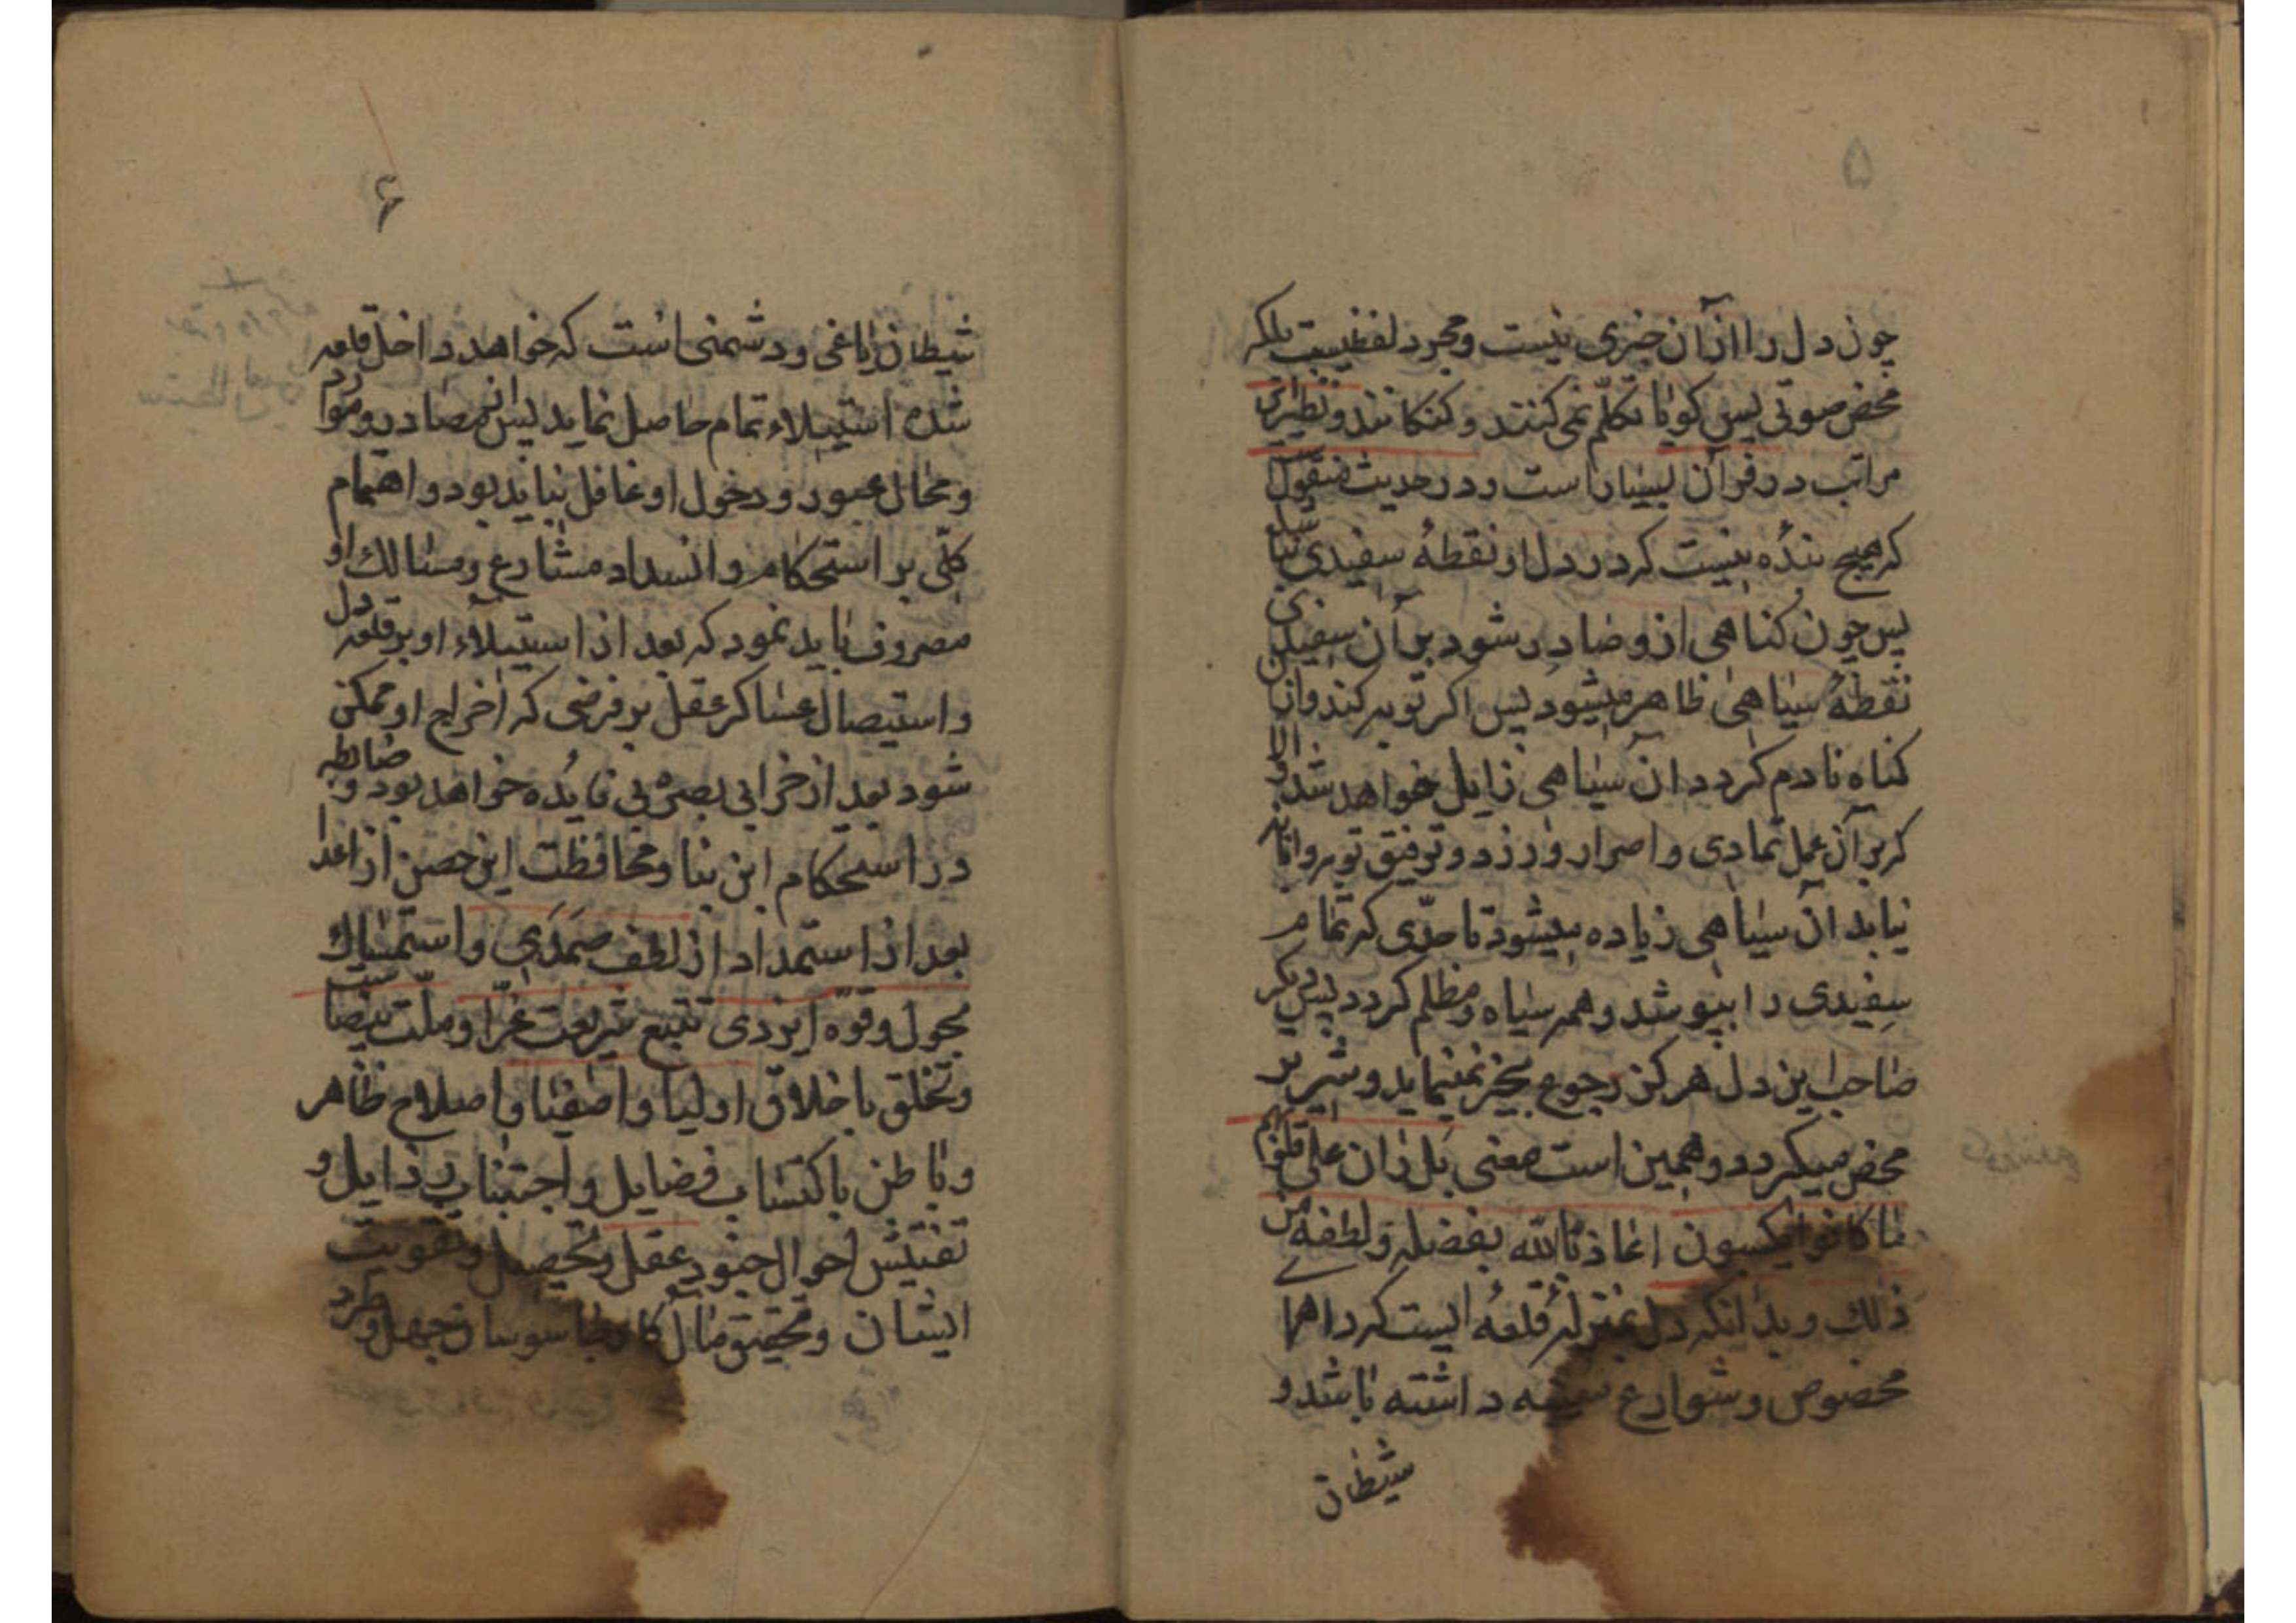 ۵
چون دل را از آن خبری نیست و مجرد لفظیست بلکه
محض صوتی پس کویا تکلّم نمی کنند و کنکانند و نظیر این
مراتب در قرآن بسیار است و در حدیث منقول
که هیچ بنده نیست که در دل او نقطهٔ سفیدی نباشد
پس چون کناهی از و صادر شود بر آن سفیدی
نقطهٔ سیاهی ظاهر میشود پس اکر توبه کند و از آن
کناه نادم کردد آن سیاهی زایل خواهد شد و الا
که بر آن عمل تمادی و اصرار ورزد و توفیق توبه و انابه
نیابد آن سیاهی زیاده میشود تا حدّی که تمام
سفیدی را بپوشد و همه سیاه و مظلم کردد پس دیکر
صاحب این دل هرکز رجوع بخیر نمینماید و شریر
محض میکردد و همین است معنی بل ران علی قلوبهم
ما کانوا یکسبون اعاذنا الله بفضله و لطفه من
ذلک و بدانکه دل بمنزلهٔ قلعه ایست که راهها
مخصوص و شوارع داشته باشد و
شیطان
۶
شیطان یاغی و دشمنی است که خواهد داخل قلعه
شده استیلاء تمام حاصل نماید پس از مصادر و موارد
و محال عبور و دخول او غافل نباید بود و اهتمام
کلّی بر استحکام و انسداد مشارع و مسالك او
مصروف باید نمود که بعد از استیلاء او بر قلعه دل
و استیصال عساکر عقل بر فرضی که اخراج او ممکن
شود بعد از خرابی بصره بی فایده خواهد بود و ضابطه
در استحکام این بنا و محافظت این حصن از اعدا
بعد از استمداد از لطف صمدی و استمساك
بحول و قوّه ایزدی تتبع شریعت غرّا و ملّت بیضا است
و تخلق باخلاق اولیا و اصفیا و اصلاح ظاهر
و باطن باکتساب فضایل و اجتناب رذایل و
تفتیش احوال جنود عقل و تحصیل و تقویت
ایشان و تحقیق مآل کار جاسوسان جهل و طرد